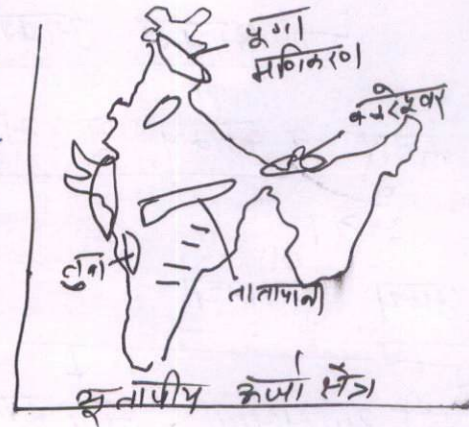 पूगा
मणिकरण
बकरेश्वर
तुवा
तातापानी
भूतापीय ऊर्जा क्षेत्र